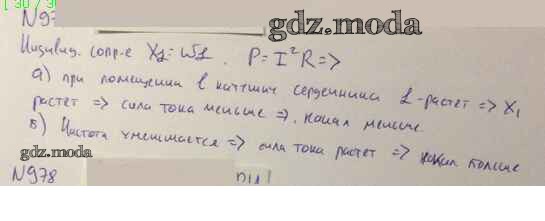 [ 30 / 3
N97
gdz.moda
Индивид. сопр-е X_L = WL. P = I²R =>
а) при помещении в катушку сердечника L-растет => X_L
растет => сила тока меньше =>. накал меньше.
б) Частота уменьшается => сила тока растет => накал больше
gdz.moda
N978